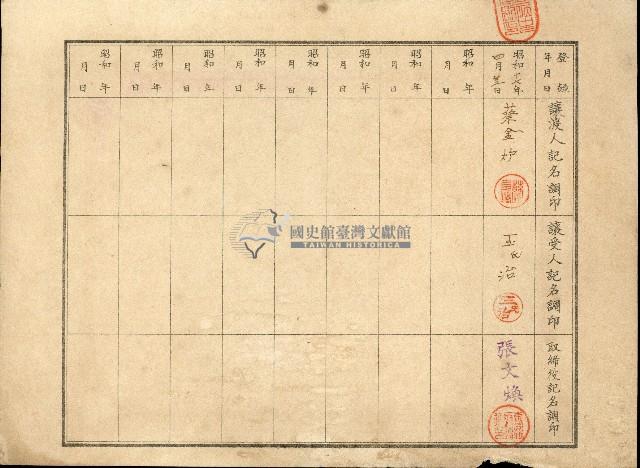 登錄年月日
讓渡人記名調印
讓受人記名調印
取締役記名調印
昭和十七年
四月廿一日
蔡金炉
王氏治
張文煥
昭和 年
月 日
昭和 年
月 日
昭和 年
月 日
昭和 年
月 日
昭和 年
月 日
昭和 年
月 日
昭和 年
月 日
國史館臺灣文獻館
TAIWAN HISTORICA